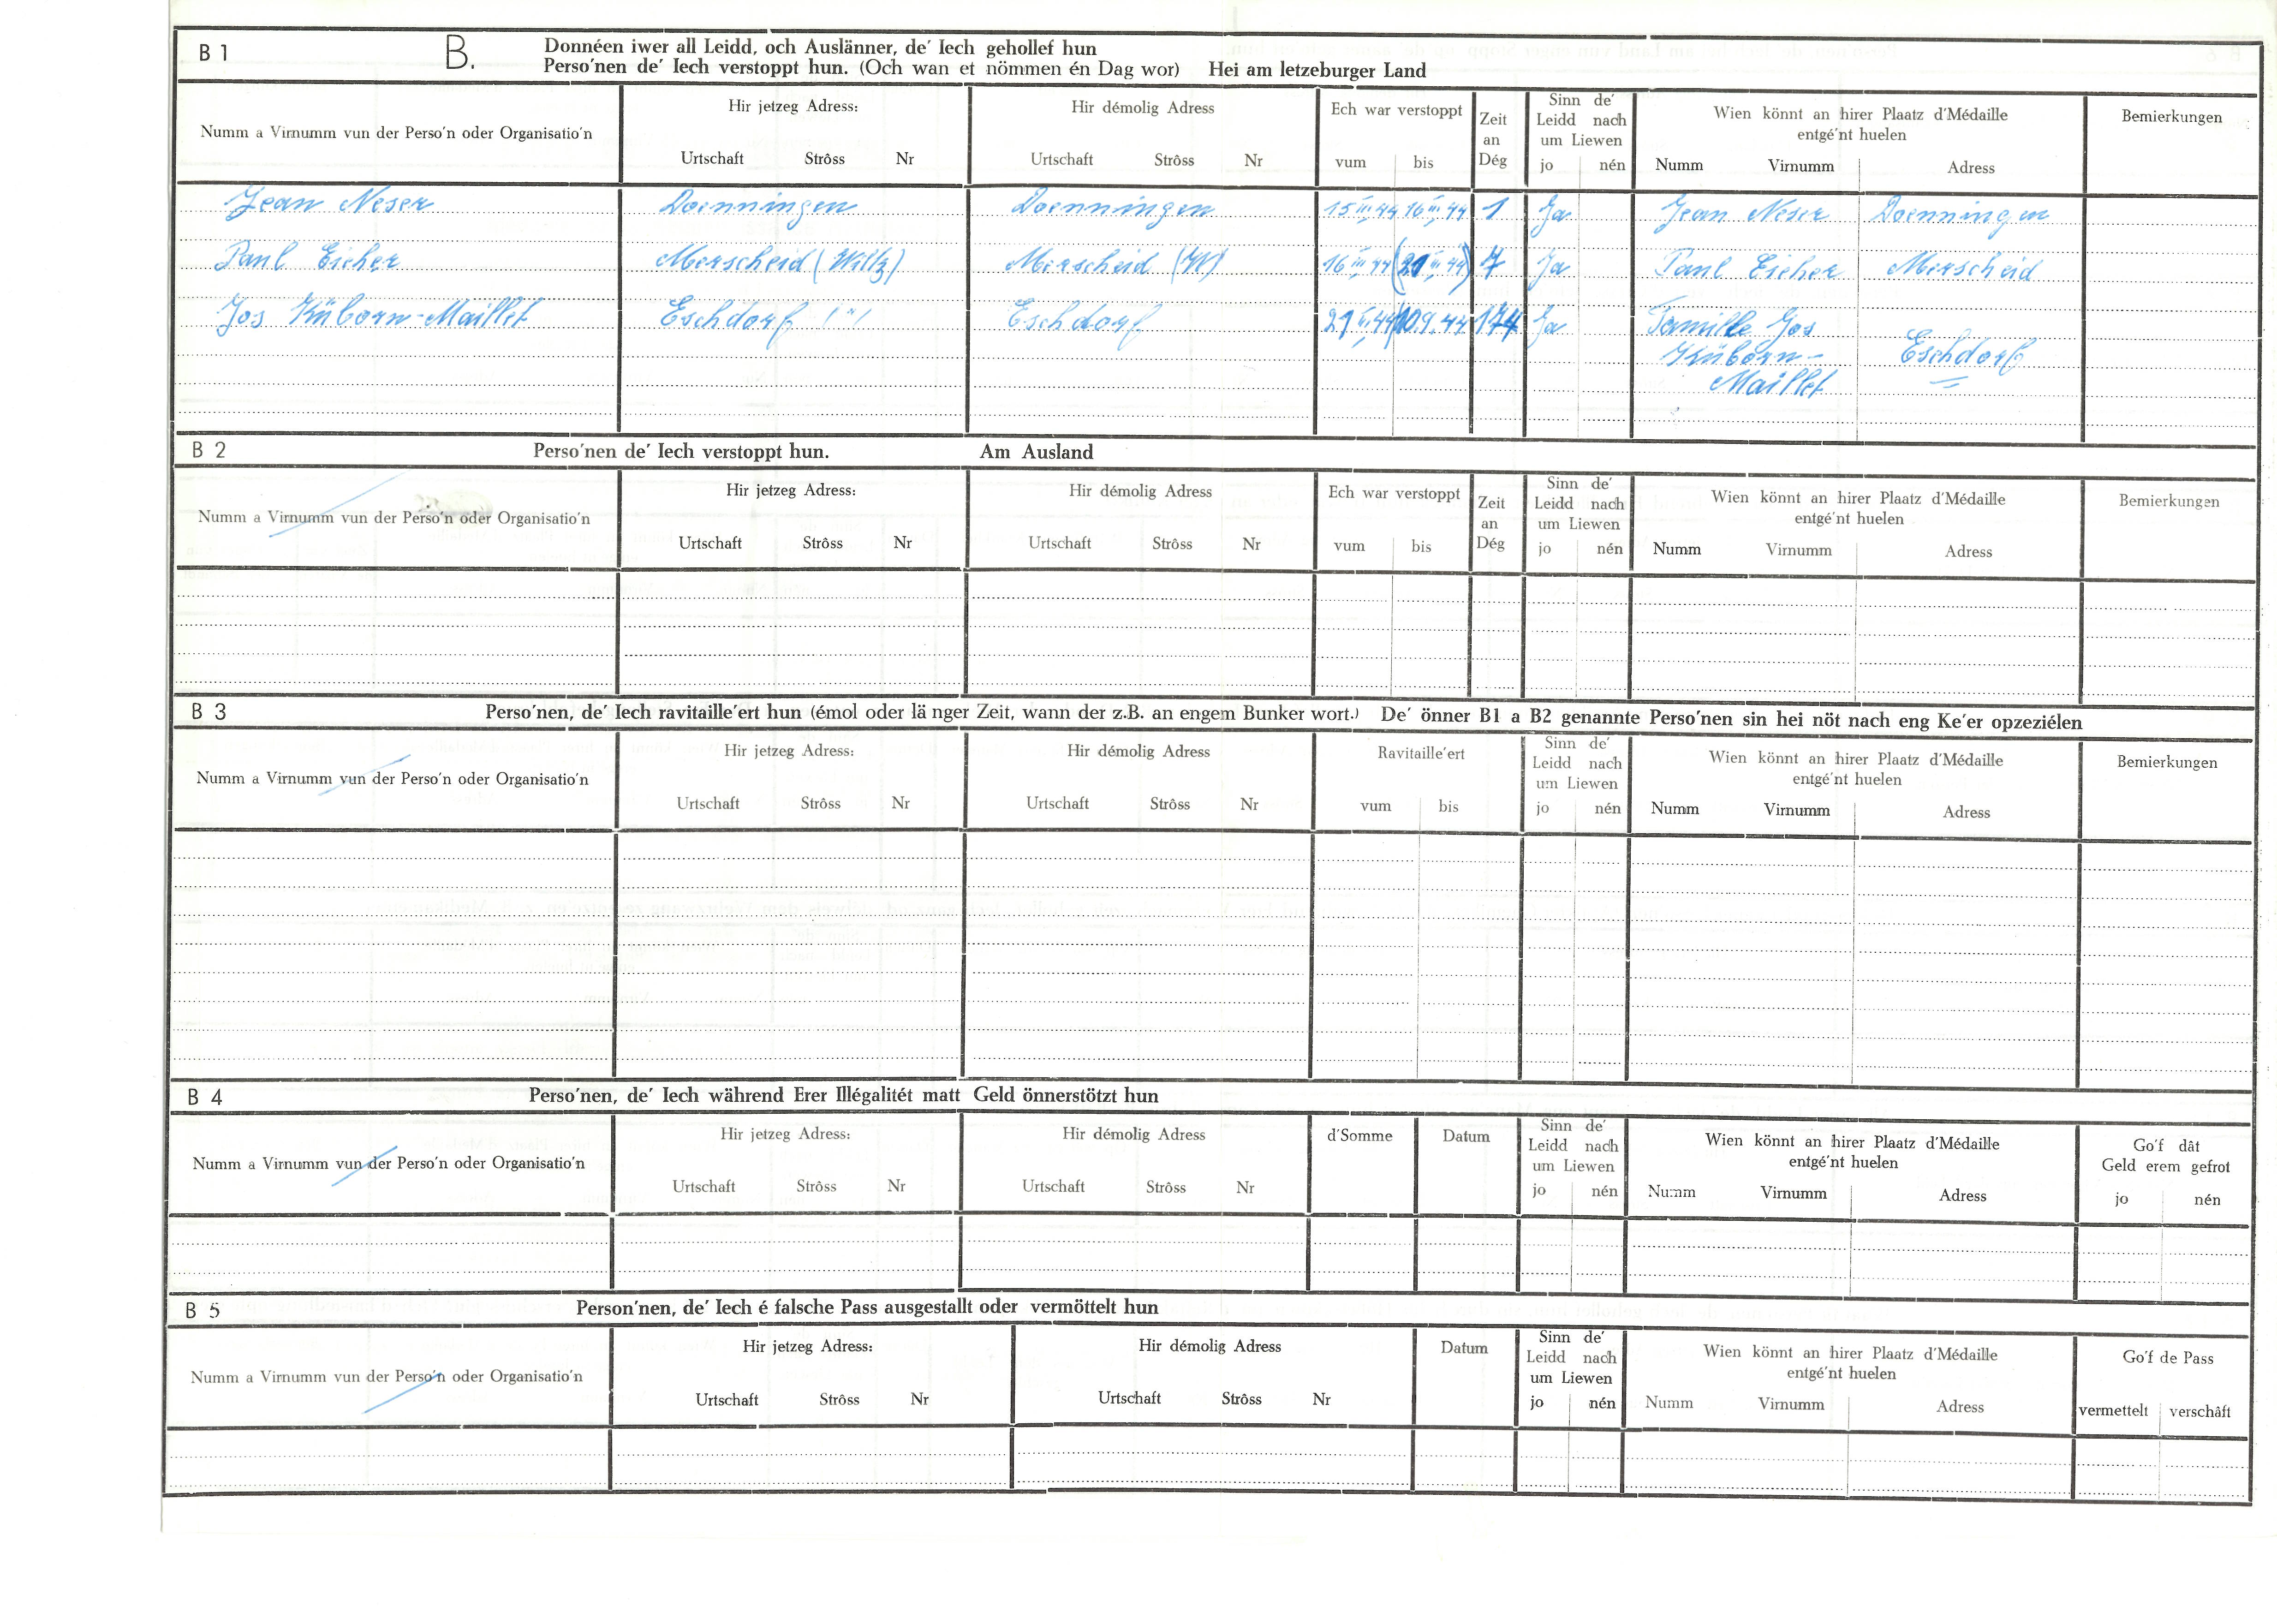 B 1 B. Donnéen iwer all Leidd, och Auslänner, de' Iech gehollef hun
Perso'nen de' Iech verstoppt hun. (Och wan et nömmen én Dag wor) Hei am letzeburger Land
Numm a Virnumm vun der Perso'n oder Organisatio'n Hir jetzeg Adress: Hir démolig Adress Ech war verstoppt Zeit an Dég Sinn de' Leidd nach um Liewen Wien könnt an hirer Plaatz d'Médaille entgé'nt huelen Bemierkungen
Urtschaft Strôss Nr Urtschaft Strôss Nr vum bis jo nén Numm Virnumm Adress
Jean Neser Doenningen Doenningen 15 III 44 16 III 44 1 Ja Jean Neser Doenningen
Paul Eicher Merscheid (Wiltz) Merscheid (W) 16 III 44 (21 III 44) 7 Ja Paul Eicher Merscheid
Jos Küborn-Maillet Eschdorf (") Eschdorf 21 III 44 10.9.44 174 Ja Famille Jos
Küborn- Eschdorf
Maillet
B 2 Perso'nen de' Iech verstoppt hun. Am Ausland
Numm a Virnumm vun der Perso'n oder Organisatio'n Hir jetzeg Adress: Hir démolig Adress Ech war verstoppt Zeit an Dég Sinn de' Leidd nach um Liewen Wien könnt an hirer Plaatz d'Médaille entgé'nt huelen Bemierkungen
Urtschaft Strôss Nr Urtschaft Strôss Nr vum bis jo nén Numm Virnumm Adress
B 3 Perso'nen, de' Iech ravitaille'ert hun (émol oder lä nger Zeit, wann der z.B. an engem Bunker wort.) De' önner B1 a B2 genannte Perso'nen sin hei nöt nach eng Ke'er opzeziélen
Numm a Virnumm vun der Perso'n oder Organisatio'n Hir jetzeg Adress: Hir démolig Adress Ravitaille'ert Sinn de' Leidd nach um Liewen Wien könnt an hirer Plaatz d'Médaille entgé'nt huelen Bemierkungen
Urtschaft Strôss Nr Urtschaft Strôss Nr vum bis jo nén Numm Virnumm Adress
B 4 Perso'nen, de' Iech während Erer Illégalitét matt Geld önnerstötzt hun
Numm a Virnumm vun der Perso'n oder Organisatio'n Hir jetzeg Adress: Hir démolig Adress d'Somme Datum Sinn de' Leidd nach um Liewen Wien könnt an hirer Plaatz d'Médaille entgé'nt huelen Go'f dât Geld erem gefrot
Urtschaft Strôss Nr Urtschaft Strôss Nr jo nén Numm Virnumm Adress jo nén
B 5 Person'nen, de' Iech é falsche Pass ausgestallt oder vermöttelt hun
Numm a Virnumm vun der Perso'n oder Organisatio'n Hir jetzeg Adress: Hir démolig Adress Datum Sinn de' Leidd nach um Liewen Wien könnt an hirer Plaatz d'Médaille entgé'nt huelen Go'f de Pass
Urtschaft Strôss Nr Urtschaft Strôss Nr jo nén Numm Virnumm Adress vermettelt verschâft